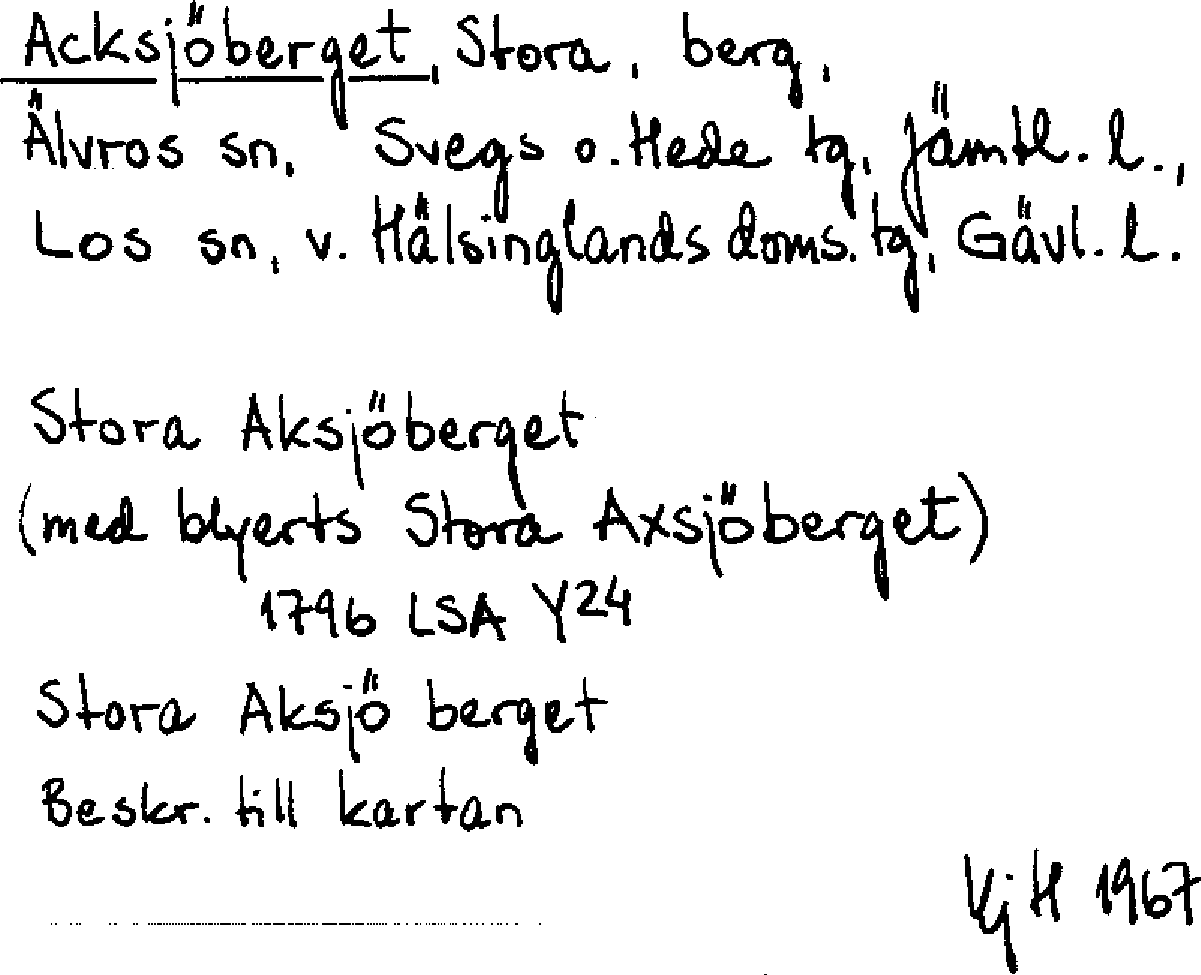 Acksjöberget, Stora, berg,
Älvros sn, Svegs o. Hede tg, Jämtl. l.,
Los sn, v. Hälsinglands doms. tg, Gävl. l.
Stora Aksjöberget
(med blyerts Stora Axsjöberget)
1796 LSA Y24
Stora Aksjö berget
Beskr. till kartan
KjH 1967